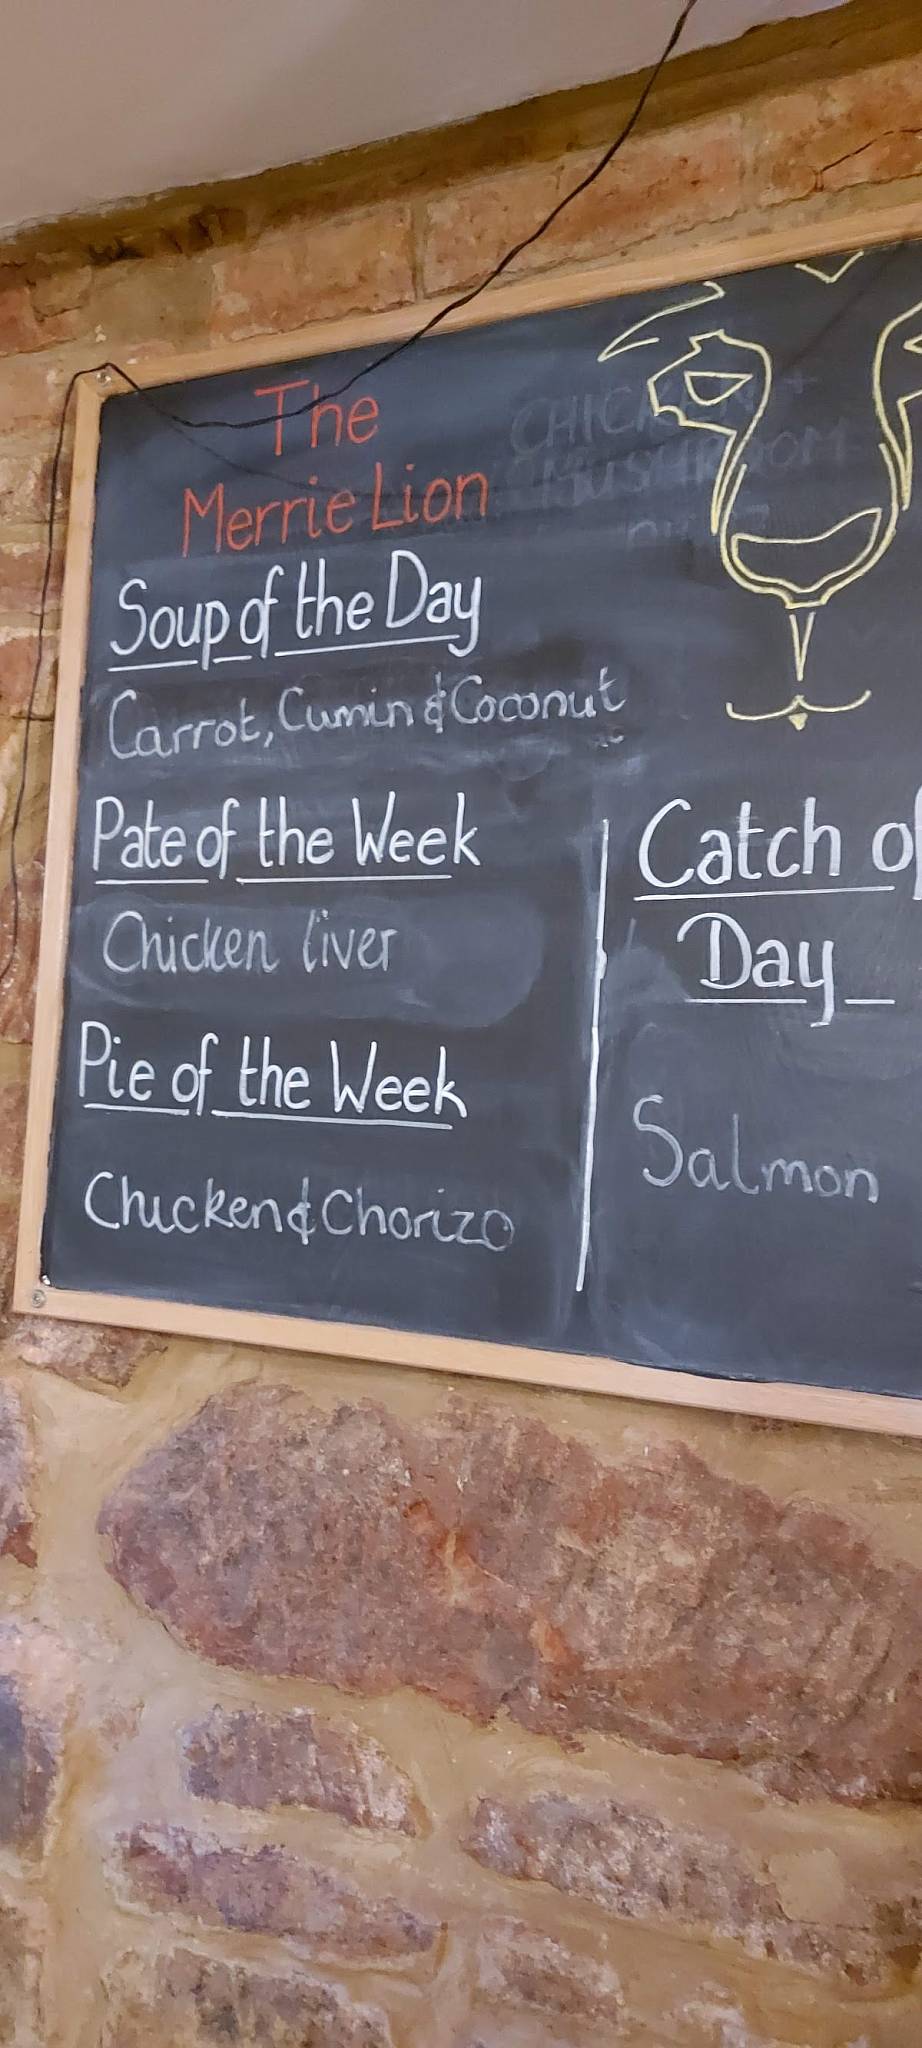 The
Merrie Lion
Soup of the Day
Carrot, Cumin & Coconut
Pate of the Week
Chicken liver
Pie of the Week
Chicken & Chorizo
CHICKEN +
MUSHROOM
Catch of
Day
Salmon